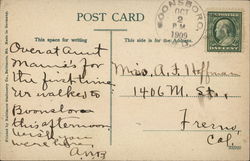 POST CARD
This space for writing
This side is for the Address.
BOONSBORO,
OCT
2
P M
1909
Over at Aunt
Mamie's for
the first time
We walked to
Boonsboro
this afternoon.
Wish you
were
Miss. A. F. Hoffman
1406 M. St.,
Fresno,
Cal.